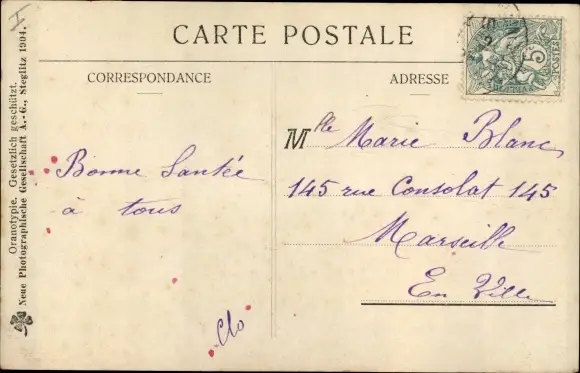 I
CARTE POSTALE
CORRESPONDANCE
ADRESSE
5
POSTES
Bonne Santée
à tous
Clo
Mlle Marie Blanc
145 rue Consolat 145
Marseille
En Ville
Oranotypie. Gesetzlich geschützt.
Neue Photographische Gesellschaft A.-G., Steglitz 1904.